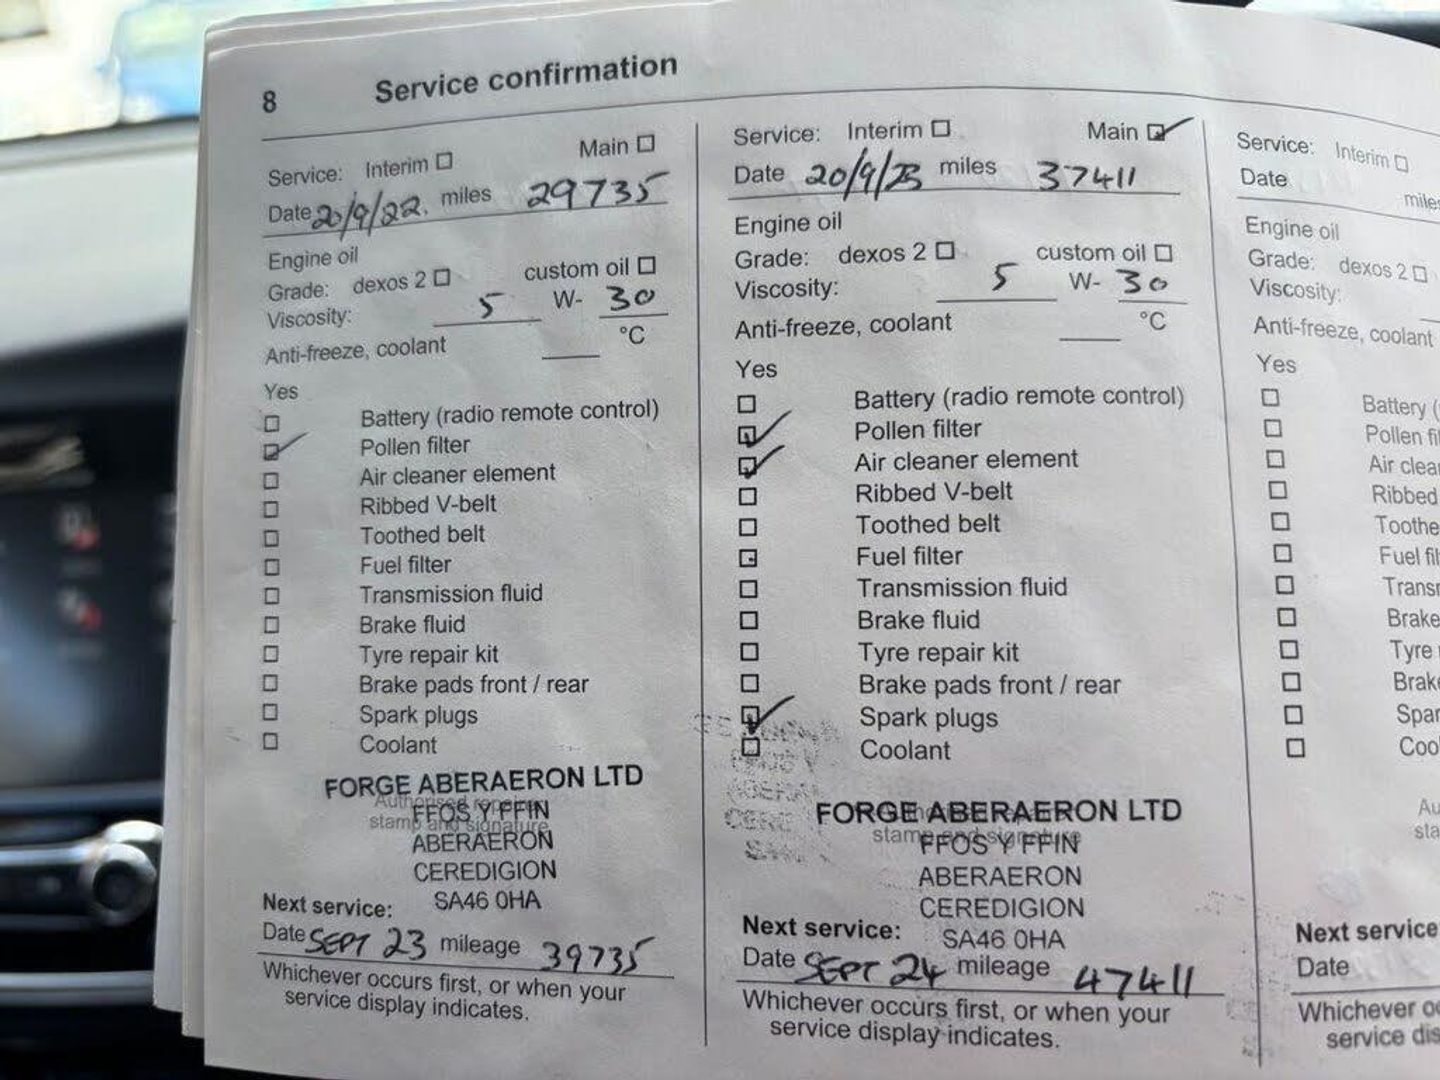 8 Service confirmation
Service: Interim ☐ Main ☐
Date 20/9/22, miles 29735
Engine oil
Grade: dexos 2 ☐ custom oil ☐
Viscosity: 5 W- 30
Anti-freeze, coolant °C
Yes
☐ Battery (radio remote control)
☑ Pollen filter
☐ Air cleaner element
☐ Ribbed V-belt
☐ Toothed belt
☐ Fuel filter
☐ Transmission fluid
☐ Brake fluid
☐ Tyre repair kit
☐ Brake pads front / rear
☐ Spark plugs
☐ Coolant
FORGE ABERAERON LTD
Authorised repairer
FFOS Y FFIN
stamp and signature
ABERAERON
CEREDIGION
SA46 0HA
Next service:
Date SEPT 23 mileage 39735
Whichever occurs first, or when your
service display indicates.
Service: Interim ☐ Main ☑
Date 20/9/23 miles 37411
Engine oil
Grade: dexos 2 ☐ custom oil ☐
Viscosity: 5 W- 30
Anti-freeze, coolant °C
Yes
☐ Battery (radio remote control)
☑ Pollen filter
☑ Air cleaner element
☐ Ribbed V-belt
☐ Toothed belt
☐ Fuel filter
☐ Transmission fluid
☐ Brake fluid
☐ Tyre repair kit
☐ Brake pads front / rear
☑ Spark plugs
☐ Coolant
FORGE ABERAERON LTD
stamp and signature
FFOS Y FFIN
ABERAERON
CEREDIGION
SA46 0HA
Next service:
Date SEPT 24 mileage 47411
Whichever occurs first, or when your
service display indicates.
Service: Interim ☐
Date miles
Engine oil
Grade: dexos 2 ☐
Viscosity:
Anti-freeze, coolant
Yes
☐ Battery (
☐ Pollen fil
☐ Air clea
☐ Ribbed
☐ Toothe
☐ Fuel fil
☐ Trans
☐ Brake
☐ Tyre
☐ Brak
☐ Spar
☐ Coo
Au
sta
Next service
Date
Whichever o
service dis